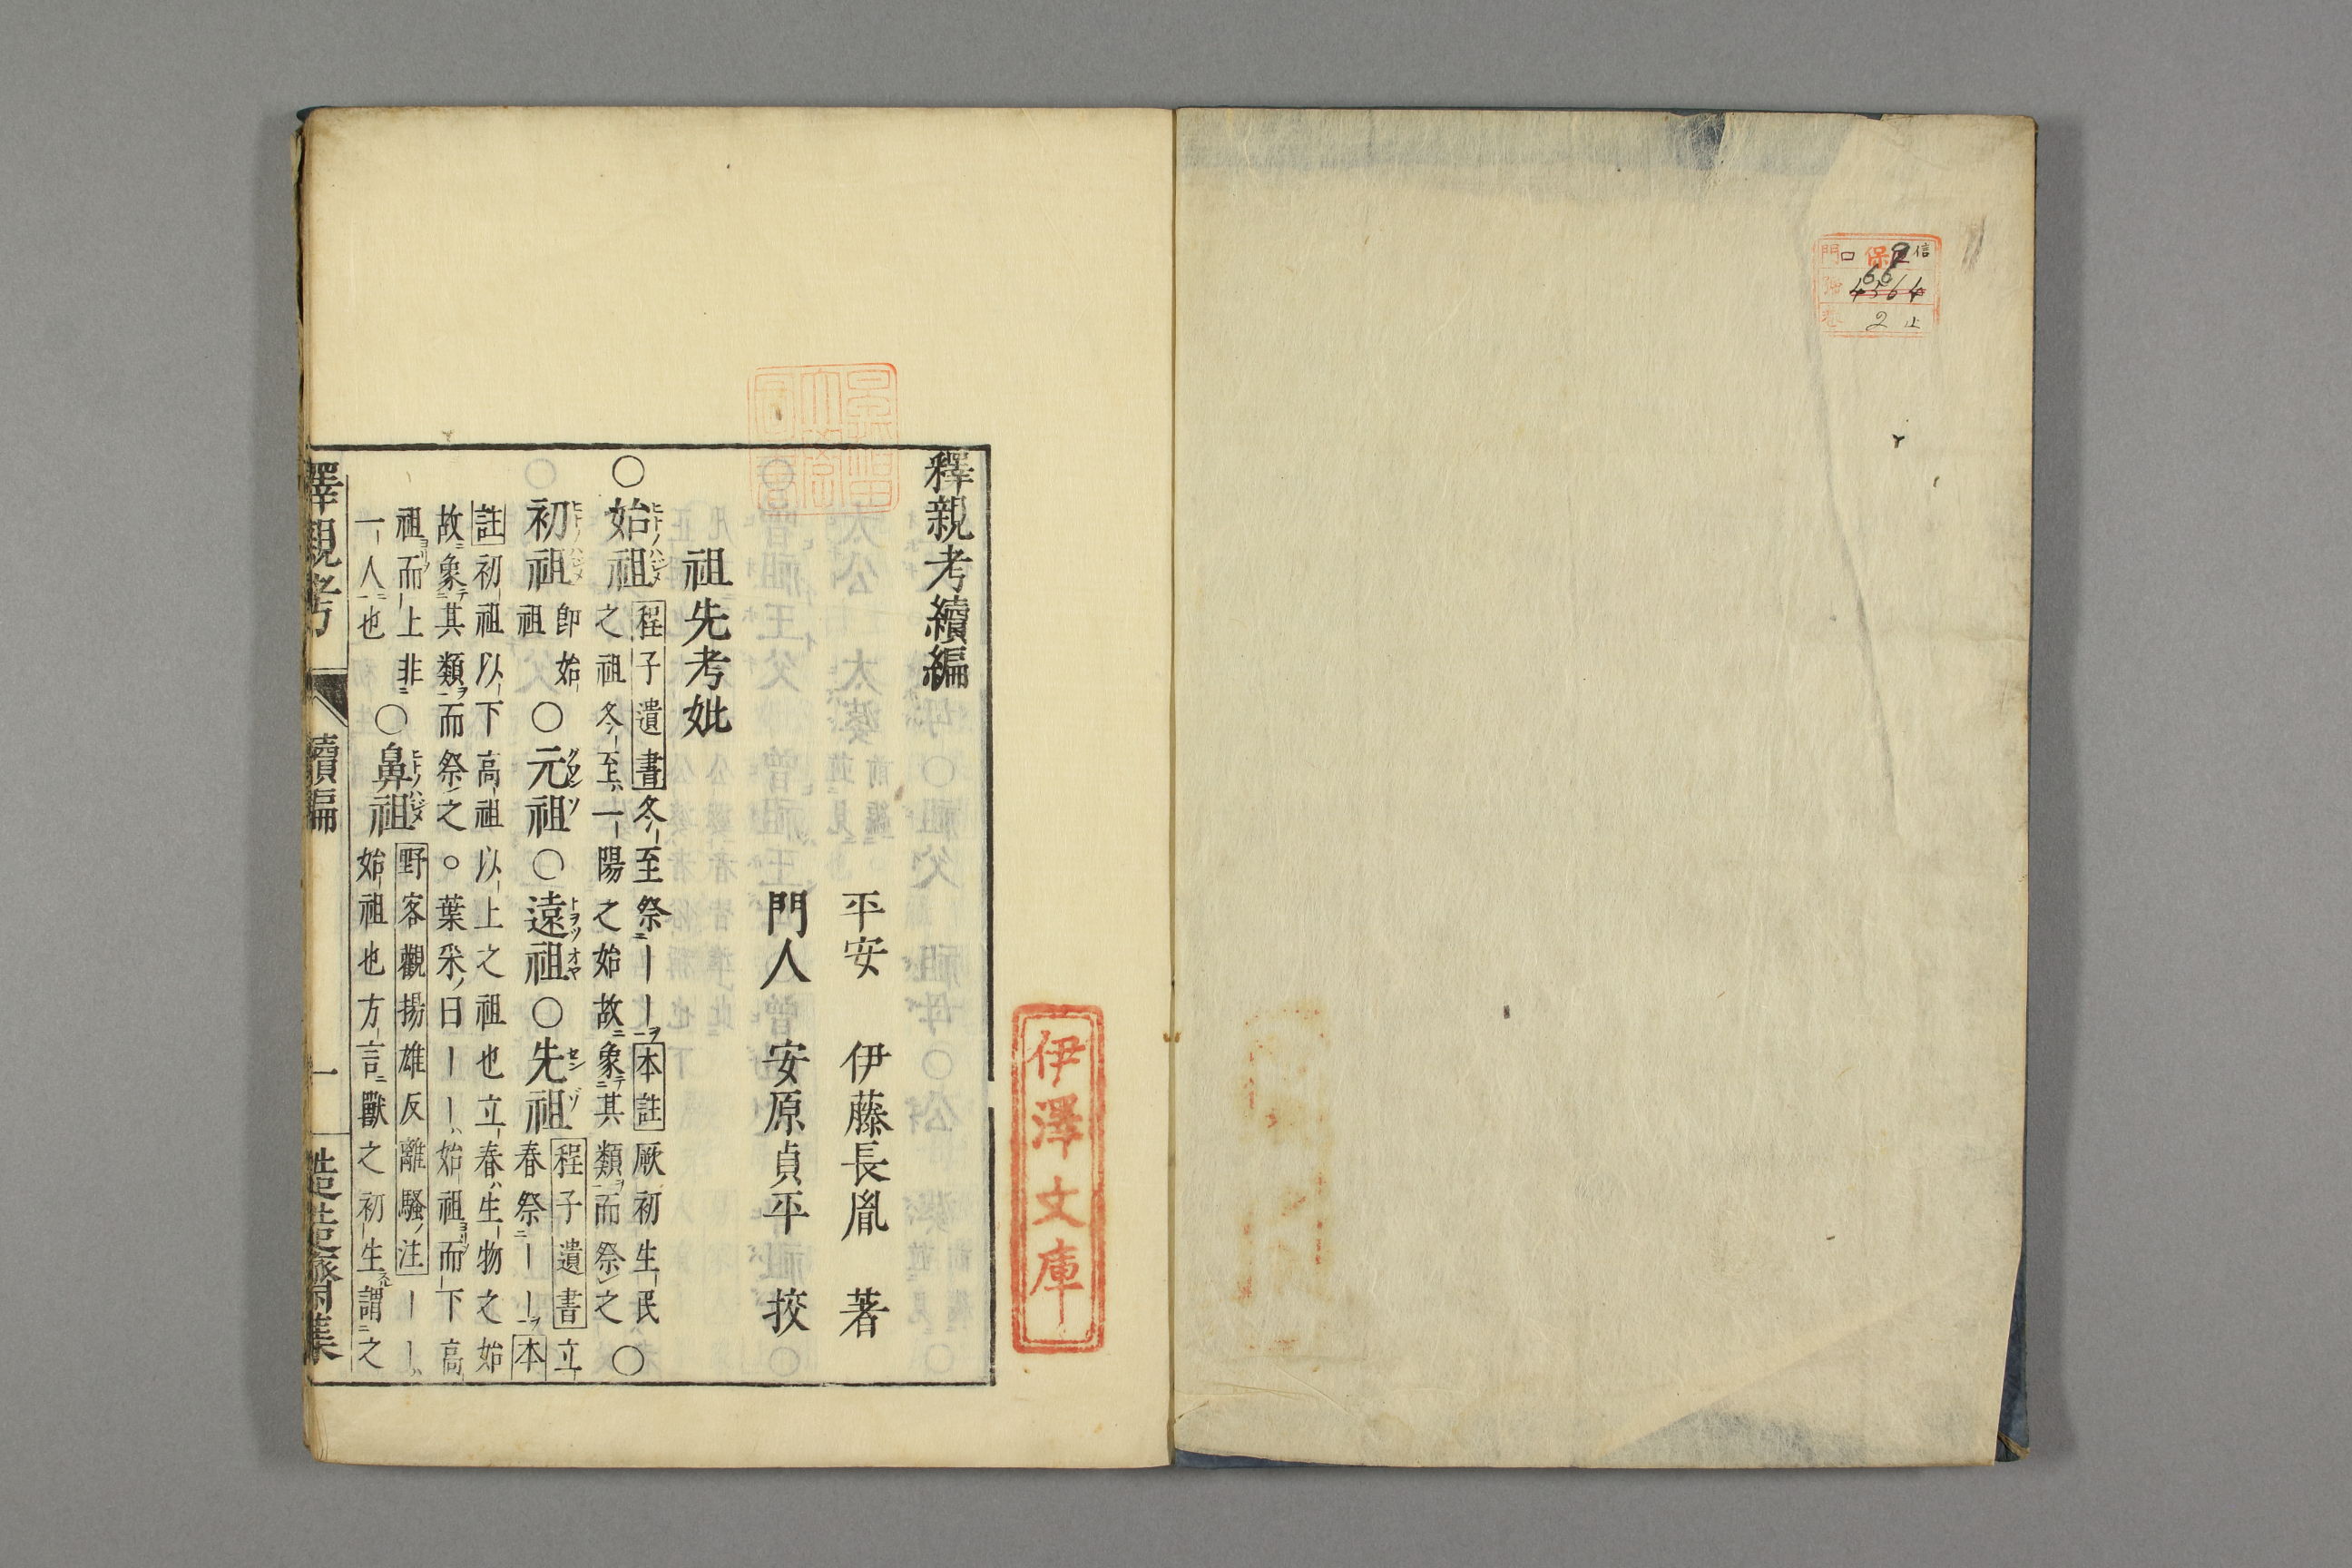 信
門 口 保
66
4564
號
巻 2 止
伊澤文庫
釋親考續編
平安 伊藤長胤 著
門人 安原貞平 挍
祖先考妣
○始祖 程子遺書冬至祭――本註厥初生民
之祖冬至一陽之始故象其類而祭之○
初祖 即始祖○元祖○遠祖○先祖 程子遺書立
春祭――本
註初祖以下高祖以上之祖也立春生物之始
故象其類而祭之○葉采曰――始祖而下高
祖而上非一人也○鼻祖 野客觀揚雄反離騷注――
始祖也方言獸之初生謂之
釋親考 續編 一